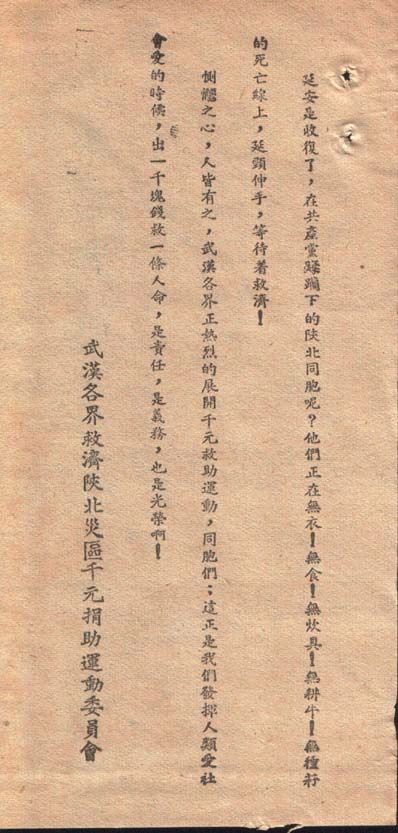 延安是收復了，在共產黨蹂躪下的陝北同胞呢？他們正在無衣！無食！無炊具！無耕牛！無種籽
的死亡線上，延頸伸手，等待着救濟！
惻隱之心，人皆有之，武漢各界正熱烈的展開千元救助運動，同胞們；這正是我們發揮人類愛社
會愛的時候，出一千塊錢救一條人命，是責任，是義務，也是光榮啊！
武漢各界救濟陝北災區千元捐助運動委員會